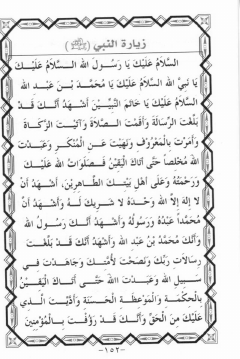 زيارة النبي (ﷺ)
السَّلاَمُ عَلَيْكَ يَا رَسُولَ اللهِ السَّلاَمُ عَلَيْكَ
يَا نَبِيَّ اللهِ السَّلاَمُ عَلَيْكَ يَا مُحَمَّدَ بْنَ عَبْدِ اللهِ
السَّلاَمُ عَلَيْكَ يَا خَاتَمَ النَّبِيِّينَ أَشْهَدُ أَنَّكَ قَدْ
بَلَّغْتَ الرِّسَالَةَ وَأَقَمْتَ الصَّلاَةَ وَآتَيْتَ الزَّكَاةَ
وَأَمَرْتَ بِالْمَعْرُوفِ وَنَهَيْتَ عَنِ الْمُنْكَرِ وَعَبَدْتَ
اللهَ مُخْلِصاً حَتَّى أتَاكَ الْيَقِينُ فَصَلَوَاتُ اللهِ عَلَيْكَ
وَرَحْمَتُهُ وَعَلَى أَهْلِ بَيْتِكَ الطَّاهِرِينَ، أَشْهَدُ أَنْ
لاَ إِلهَ إِلاَّ اللهُ وَحْدَهُ لاَ شَرِيكَ لَهُ وَأَشْهَدُ أَنَّ
مُحَمَّداً عَبْدُهُ وَرَسُولُهُ وَأَشْهَدُ أَنَّكَ رَسُولُ اللهِ
وَأَنَّكَ مُحَمَّدُ بْنُ عَبْدِ اللهِ وَأَشْهَدُ أَنَّكَ قَدْ بَلَّغْتَ
رِسَالاَتِ رَبِّكَ وَنَصَحْتَ لأُمَّتِكَ وَجَاهَدْتَ فِي
سَبِيلِ اللهِ وَعَبَدْتَ اللهَ حَتَّى أَتَاكَ الْيَقِينُ
بِالْحِكْمَةِ وَالْمَوْعِظَةِ الْحَسَنَةِ وَأَدَّيْتَ الَّذِي
عَلَيْكَ مِنَ الْحَقِّ وَأَنَّكَ قَدْ رَؤُفْتَ بِالْمُؤْمِنِينَ
-١٥٢-